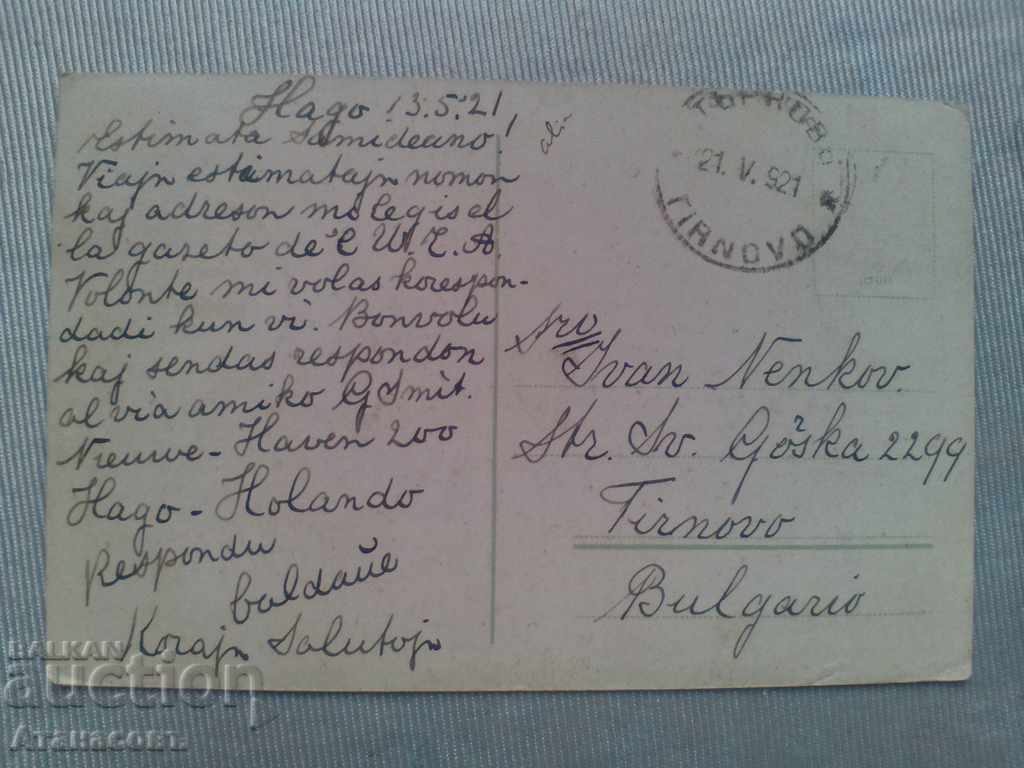 Hago 13.5.'21
Estimata Samideano!
Viajn estimatajn nomon
kaj adreson mi legis el
la gazeto de'l U.E.A.
Volonte mi volas korespon-
dadi kun vi. Bonvolu
kaj sendas respondon
al via amiko G Smit.
Nieuwe-Haven 200
Hago - Holando
Respondu
baldaŭe
Korajn Salutojn
Sro
Ivan Nenkov.
Str. Sv. Góška 2299
Tirnovo
Bulgario
21. V. 921
TIRNOVO
BALKAN
auction
Атанасовъ